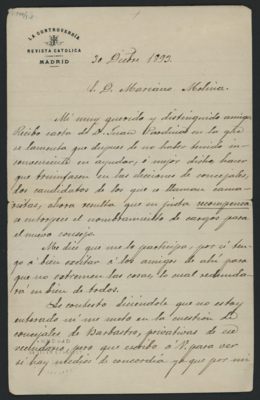 LA CONTROVERSIA
REVISTA CATOLICA
MADRID
30 Dicbre 1893.
S. D. Mariano Molina.
Mi muy querido y distinguido amigo:
Recibo carta de D. Juan en la que
se lamenta que despues de no haber tenido in-
conveniente en ayudar, ó mejor dicho hacer
que triunfasen en las elecciones de concejales,
los candidatos de los que se llaman
ahora resulta que en justa recompensa
se entorpece el nombramiento de cargos para
el nuevo consejo.
Me dice que me lo participa, por si ten-
go á bien escitar á los amigos de ahí para
que no estremen las cosas, lo cual redunda-
rá en bien de todos.
Le contesto diciendole que no estoy
enterado ni me meto en la cuestion de
concejales de Barbastro, privativas de ese
vecindario, pero que escribo á V. para ver
si hay medios de concordia ya que por mi